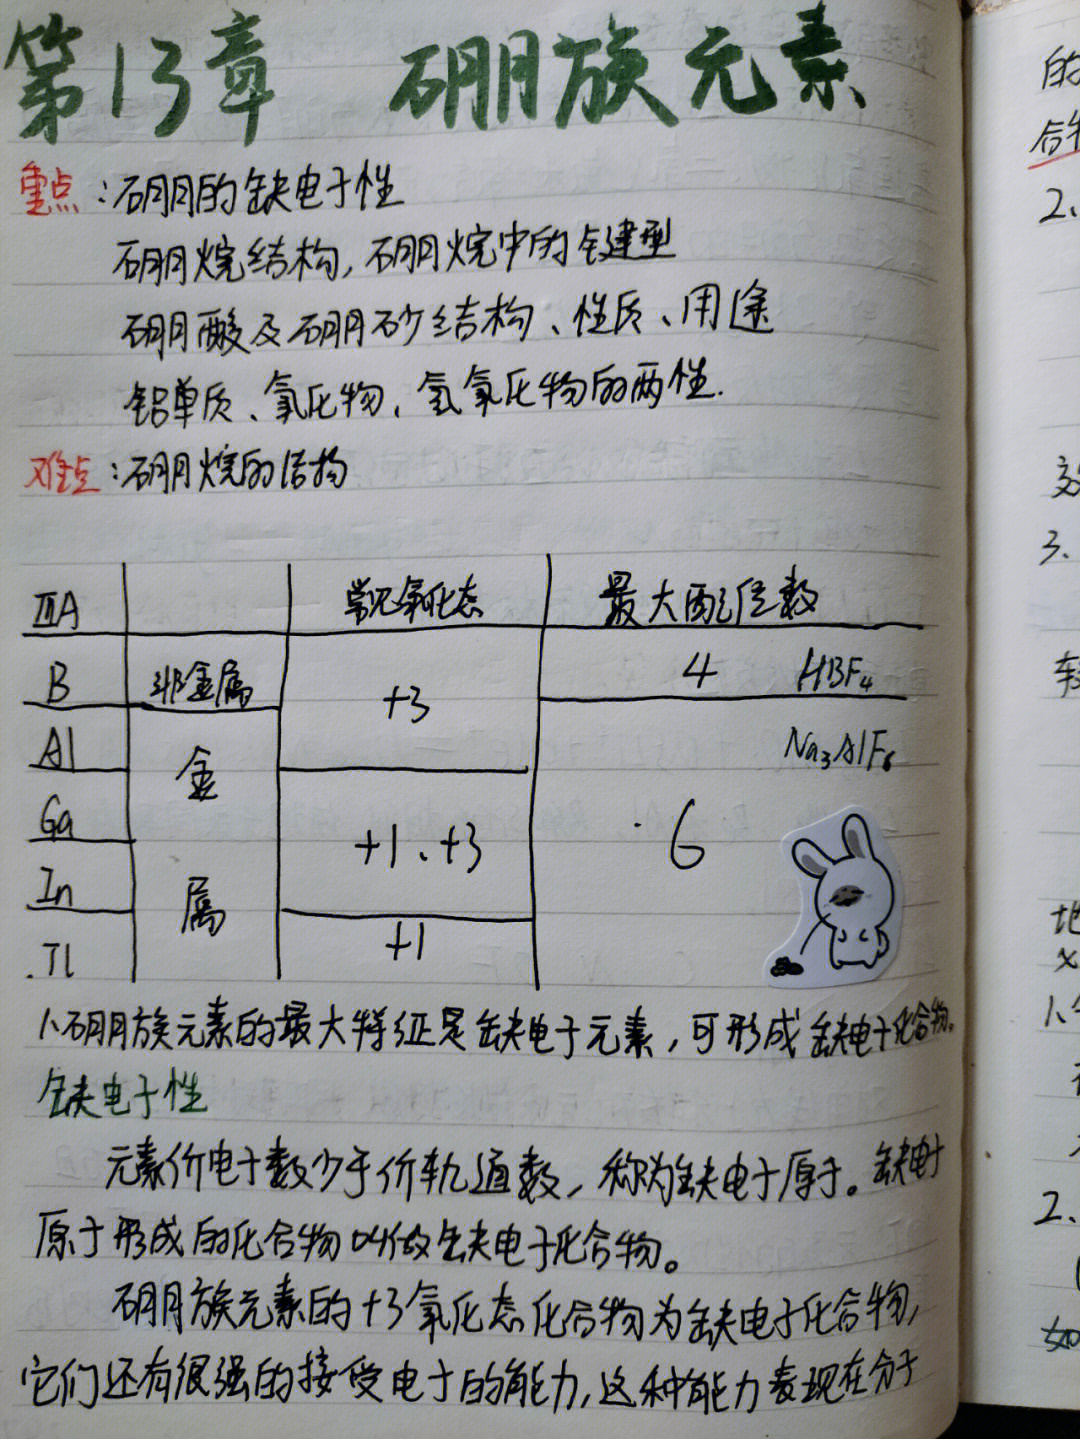 第13章 硼族元素
重点:硼的缺电子性
硼烷结构,硼烷中的键型
硼酸及硼砂结构、性质、用途
铝单质、氧化物、氢氧化物的两性.
难点:硼烷的结构
ⅢA 常见氧化态 最大配位数
B 非金属 +3 4 HBF₄
Al 金 Na₃AlF₆
Ga +1、+3 6
In 属
Tl +1
1、硼族元素的最大特征是缺电子元素,可形成缺电子化合物。
缺电子性
元素价电子数少于价轨道数,称为缺电子原子。缺电子
原子形成的化合物叫做缺电子化合物。
硼族元素的+3氧化态化合物为缺电子化合物,
它们还有很强的接受电子的能力,这种能力表现在分子
的
合物
2、
效
3、
较
地
1、
2、
如